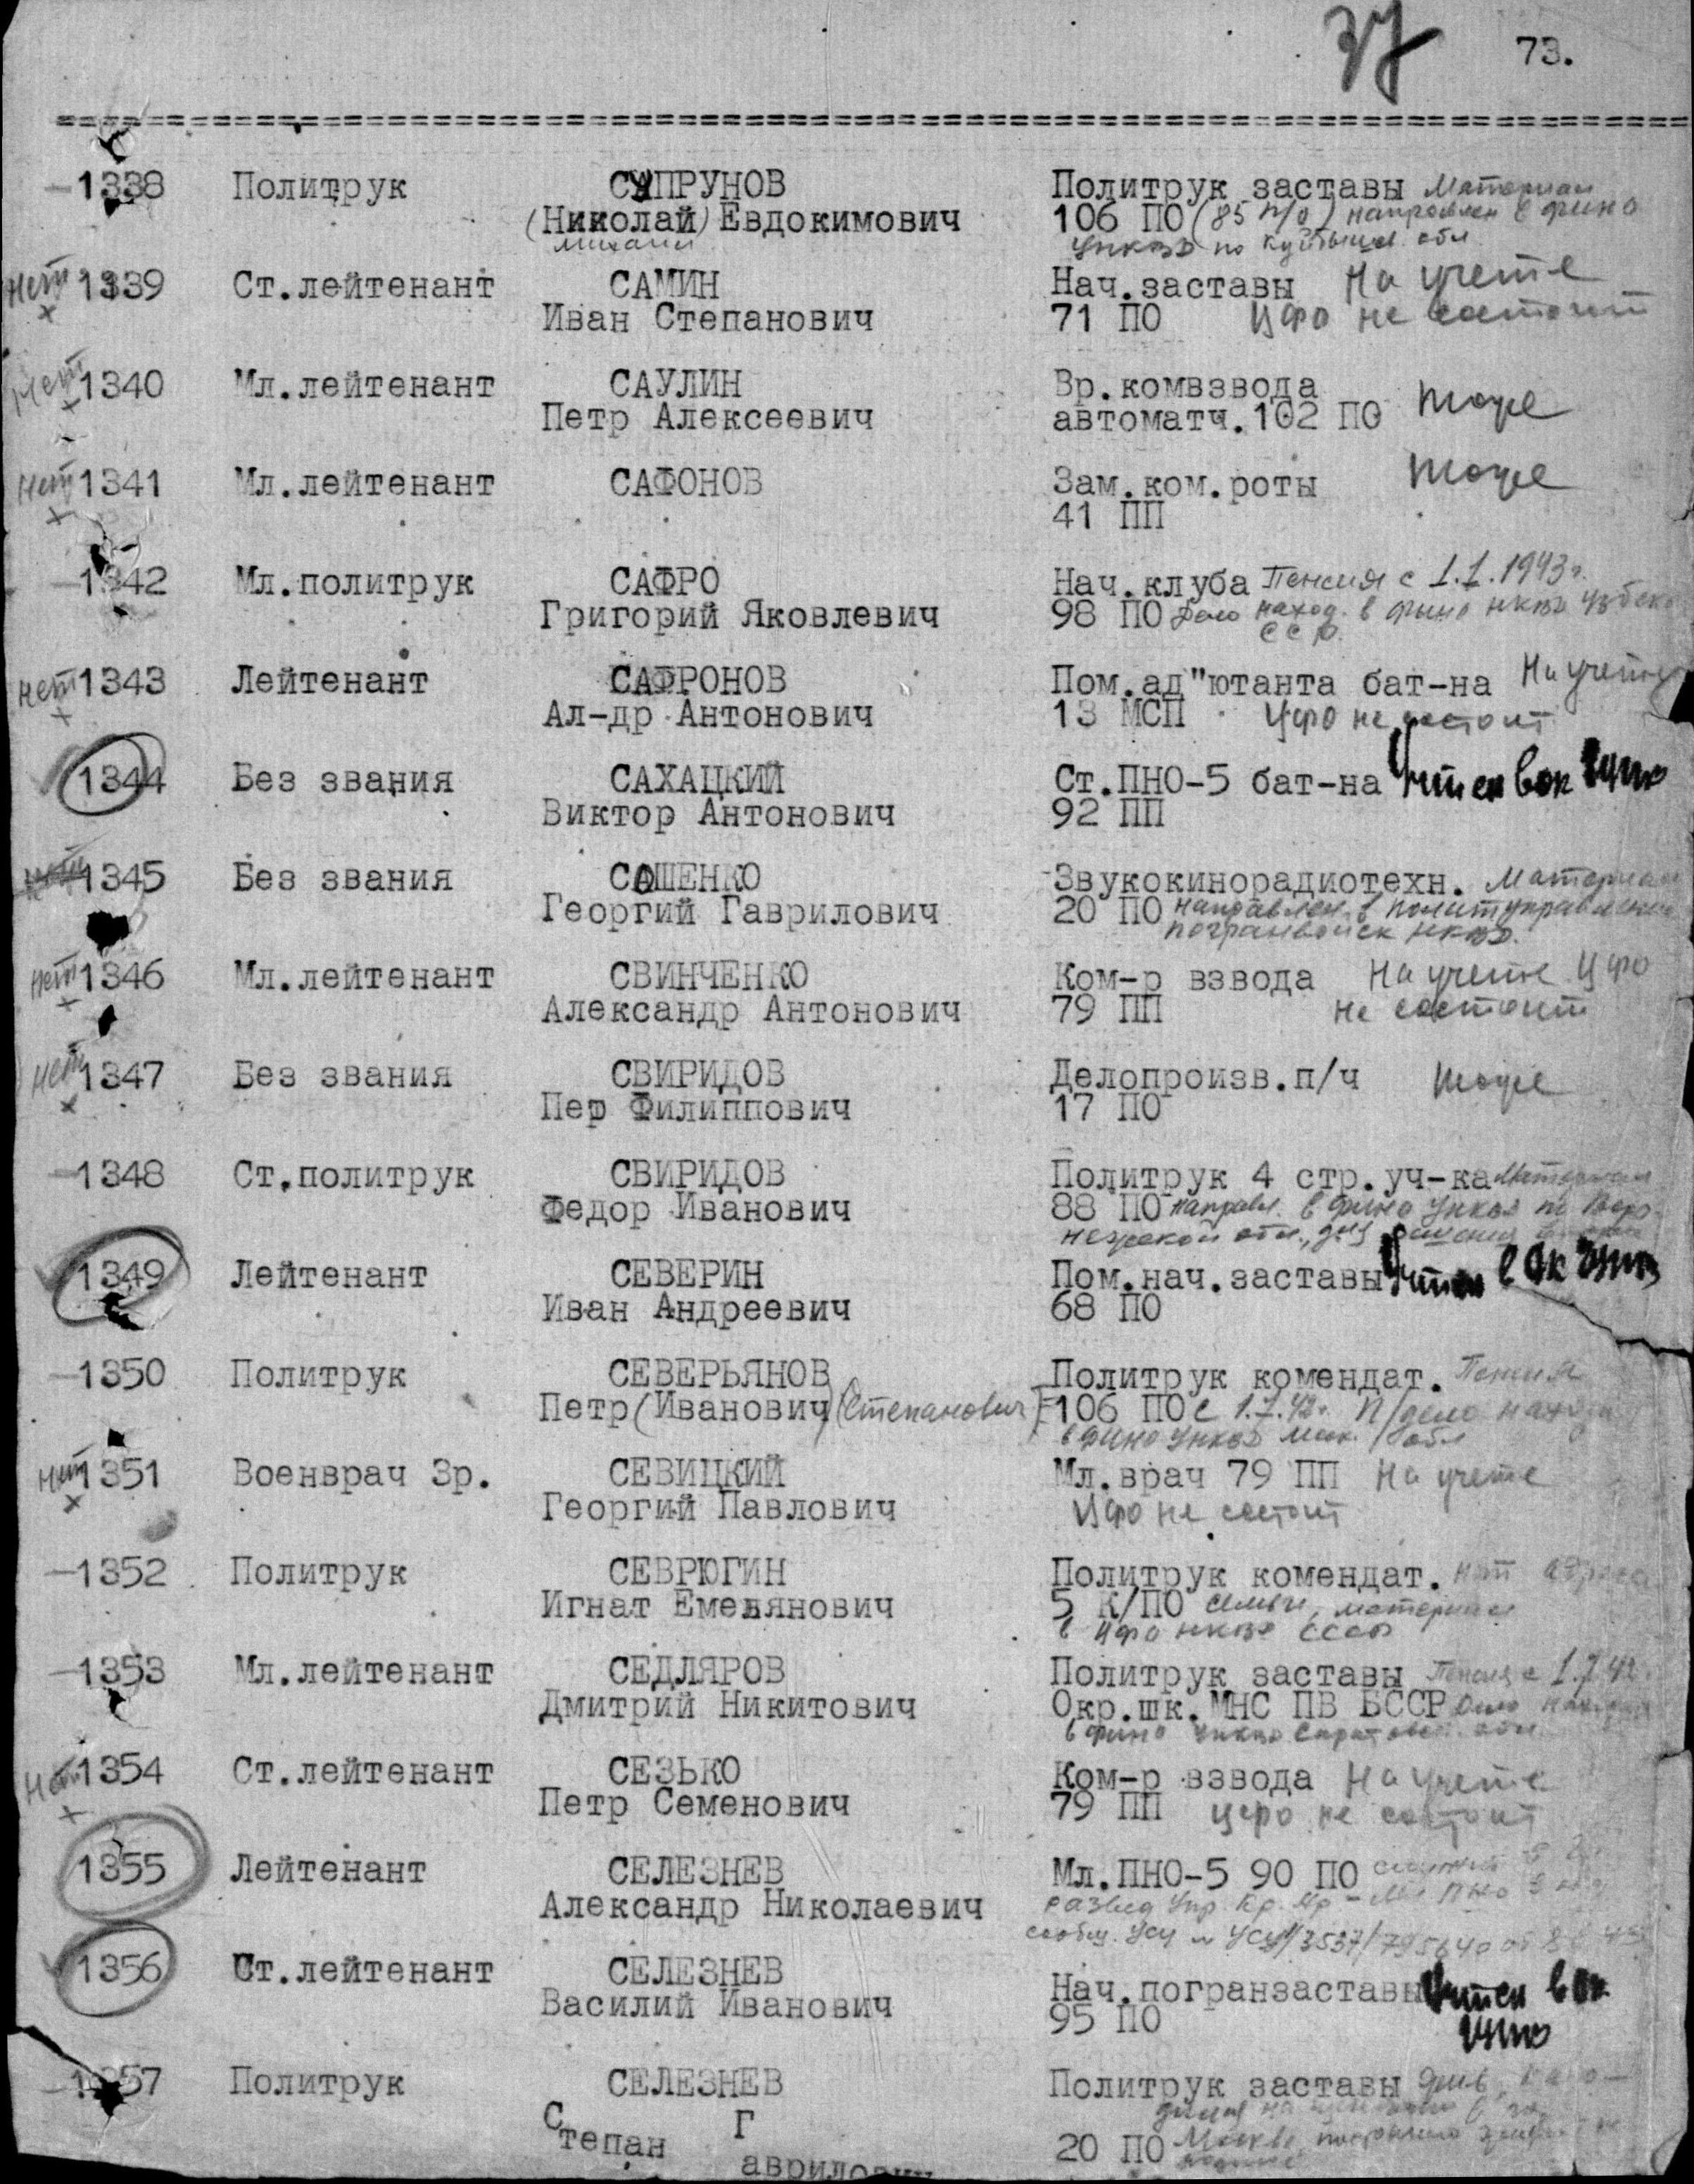 37 73.
1338 Политрук СУПРУНОВ Политрук заставы Материал
(Николай) Евдокимович 106 ПО (85 п/о) направлен в фино
михаил УНКВД по Куйбыш. обл
нет 1339 Ст.лейтенант САМИН Нач.заставы На учете
Иван Степанович 71 ПО Цфо не состоит
Нет 1340 Мл.лейтенант САУЛИН Вр.комвзвода
Петр Алексеевич автоматч.102 ПО тоже
Нет 1341 Мл.лейтенант САФОНОВ Зам.ком.роты тоже
41 ПП
1342 Мл.политрук САФРО Нач.клуба Пенсия с 1.1.1943г.
Григорий Яковлевич 98 ПО Дело наход. в фино НКВД Узбекс
ССР.
нет 1343 Лейтенант САФРОНОВ Пом.ад"ютанта бат-на На учете
Ал-др Антонович 13 МСП Цфо не состоит
1344 Без звания САХАЦКИЙ Ст.ПНО-5 бат-на Учтен в ок
Виктор Антонович 92 ПП
1345 Без звания САШЕНКО Звукокинорадиотехн. Материал
Георгий Гаврилович 20 ПО направлен в политуправление
погранвойск НКВД.
нет 1346 Мл.лейтенант СВИНЧЕНКО Ком-р взвода На учете Цфо
Александр Антонович 79 ПП не состоит
нет 1347 Без звания СВИРИДОВ Делопроизв.п/ч тоже
Пет Филиппович 17 ПО
1348 Ст.политрук СВИРИДОВ Политрук 4 стр.уч-ка Материал
Федор Иванович 88 ПО направл. в фино УНКВД по Воро-
нежской обл., для решения
1349 Лейтенант СЕВЕРИН Пом.нач.заставы Учтен в ок
Иван Андреевич 68 ПО
1350 Политрук СЕВЕРЬЯНОВ Политрук комендат. Пенсия
Петр (Иванович) (Степанович) 106 ПО с 1.7.42г. П/дело находи
в фино УНКВД обл
нет 1351 Военврач 3р. СЕВИЦКИЙ Мл.врач 79 ПП На учете
Георгий Павлович Цфо не состоит
1352 Политрук СЕВРЮГИН Политрук комендат. нет адреса
Игнат Емельянович 5 К/ПО семьи, материал
в Цфо НКВД СССР
1353 Мл.лейтенант СЕДЛЯРОВ Политрук заставы Пенсия с 1.7.42
Дмитрий Никитович Окр.шк.МНС ПВ БССР Дело находи
в фино УНКВД Саратовск. обл.
Нет 1354 Ст.лейтенант СЕЗЬКО Ком-р взвода На учете
Петр Семенович 79 ПП Цфо не состоит
1355 Лейтенант СЕЛЕЗНЕВ Мл.ПНО-5 90 ПО служит в
Александр Николаевич развед упр. Кр. Ар - Мл ПНО
сообщ. УСУ № УСУ/1/3537/795640 от
1356 Ст.лейтенант СЕЛЕЗНЕВ Нач.погранзаставы Учтен в ок
Василий Иванович 95 ПО
1357 Политрук СЕЛЕЗНЕВ Политрук заставы Жив,
Степан Гаврилович 20 ПО Москве